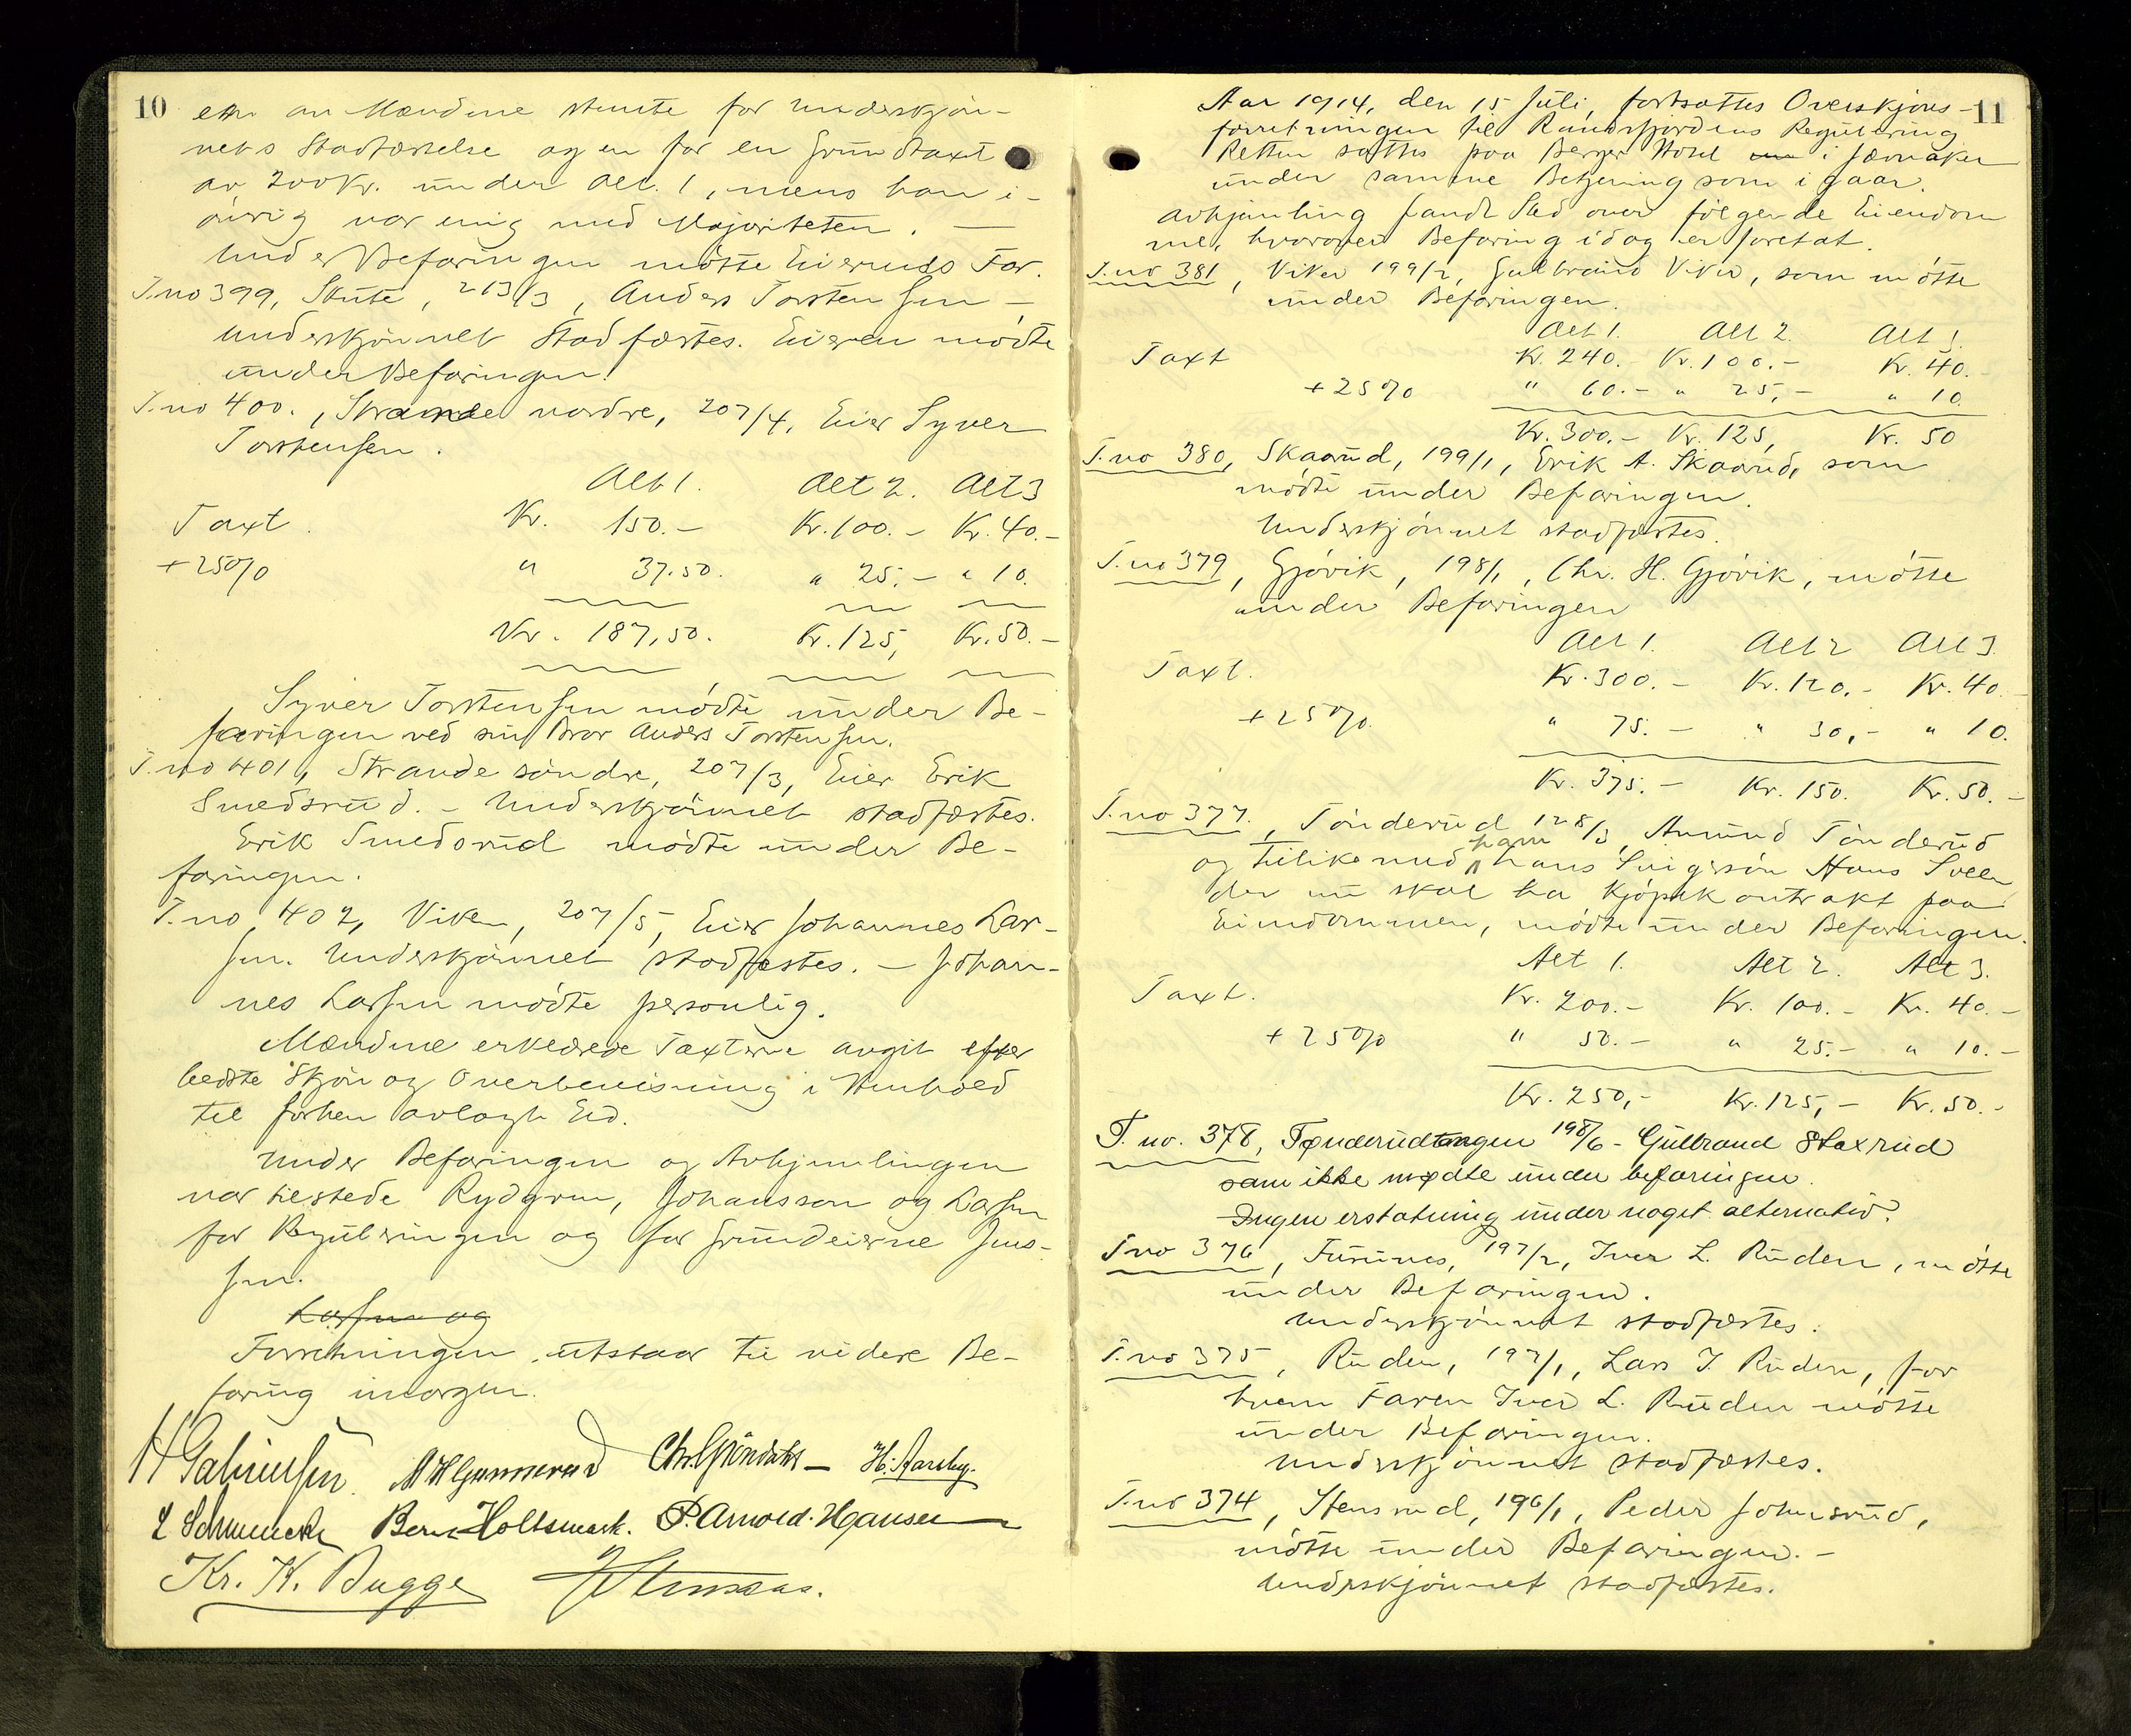 10
en av Mændene stemte for Underskjön-
nets Stadfæstelse og en for en Grundtaxt
av 200 Kr. under Alt. 1, mens han i-
övrig var enig med Majoriteten. —
Under Befaringen mötte Eierens Far.
T.no 399, Skute, 213/3, Anders Torstensen —
Underskjönnet Stadfæstes. Eieren mödte
under Befaringen.
T.no 400., Strande nordre, 207/4, Eier Syver
Torstensen.
Alt 1. Alt 2. Alt 3
Taxt. Kr. 150.- Kr. 100.- Kr. 40.-
+ 25% " 37.50. " 25.- " 10.
Kr. 187,50. Kr. 125, Kr. 50.-
Syver Torstensen mödte under Be-
faringen ved sin Bror Anders Torstensen.
T.no 401, Strande söndre, 207/3, Eier Erik
Smedsrud. - Underskjönnet stadfæstes.
Erik Smedsrud mödte under Be-
faringen.
T.no 402, Viken, 207/5, Eier Johannes Lar-
sen. Underskjönnet stadfæstes. — Johan-
nes Larsen mödte personlig.
Mændene erklærede Taxterne avgit efter
bedste Skjön og Overbevisning i Henhold
til forhen avlagt Ed.
Under Befaringen og Avhjemlingen
var tilstede Rydgren, Johansson og Larsen
for Reguleringen og for Grundeierne Jens-
sen.
Larsen og
Forretningen utstaar til videre Be-
faring imorgen.
H Gabrielsen. M H Gunnerud Chr. Gröndahl — H. Aareby.
L Schmelck Bernt Holtsmark. P. Arnold. Hansen
Kr. K. Bugge
11
Aar 1914, den 15 Juli, fortsattes Overskjöns-
forretningen til Randsfjordens Regulering
Retten sattes paa Berger Hotel i Jævnaker
under samme Betjening som i gaar.
Avhjemling fandt Sted over følgende Eiendom
me, hvorover Befaring idag er foretat.
T.no 381, Viker 199/2, Gulbrand Viker, som mötte
under Befaringen.
Alt 1. Alt 2. Alt 3.
Taxt Kr. 240.- Kr. 100.- Kr. 40.-
+ 25% " 60.- " 25,- " 10
Kr. 300.- Kr. 125, Kr. 50
T.no 380, Skaarud, 199/1, Erik A. Skaarud, som
mödte under Befaringen.
Underskjönnet stadfæstes.
T.no 379, Gjövik, 198/1, Chr. H. Gjövik, mötte
under Befaringen
Alt 1. Alt 2 Alt 3
Taxt. Kr. 300.- Kr. 120.- Kr. 40.-
+ 25% " 75.- " 30,- " 10.
Kr. 375.- Kr. 150. Kr. 50.-
T.no 377., Tönderud 128/3, Amund Tönderud
og tillikemed ham hans Svigersön Hans Sveen
der nu skal ha Kjöpekontrakt paa
Eiendommen, mödte under Befaringen.
Alt 1. Alt 2. Alt 3.
Taxt. Kr. 200.- Kr. 100.- Kr. 40.-
+ 25% " 50.- " 25.- " 10.-
Kr. 250,- Kr. 125,- Kr. 50.-
T. no. 378, Tønderudtangen 198/6 - Gulbrand Staxrud
som ikke mødte under befaringen.
Ingen erstatning under noget alternativ.
T.no 376, Furunes, 197/2, Iver L. Ruden, mötte
under Befaringen.
Underskjönnet stadfæstes.
T.no 375, Ruden, 197/1, Lars I. Ruden, for
hvem Faren Iver L. Ruden mötte
under Befaringen.
Underskjönnet stadfæstes.
T.no 374, Stensrud, 196/1, Peder Johnsrud,
mötte under Befaringen. -
Underskjönnet stadfæstes.